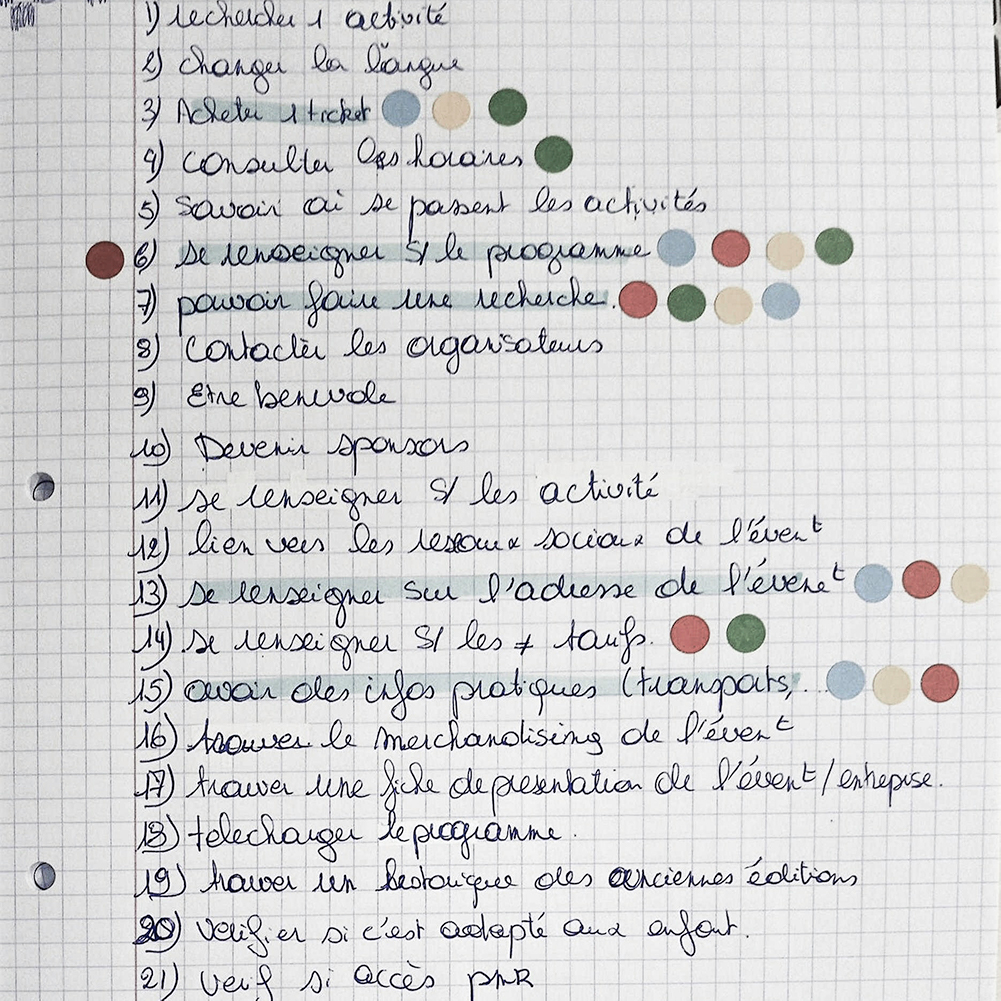 1) rechercher 1 activité
2) changer la langue
3) Acheter 1 ticket
4) consulter les horaires
5) Savoir où se passent les activités
6) se renseigner s/ le programme
7) pouvoir faire une recherche.
8) Contacter les organisateurs
9) Etre benevole
10) Devenir sponsors
11) se renseigner s/ les activité
12) lien vers les reseaux sociaux de l'évent
13) se renseigner sur l'adresse de l'évenet
14) se renseigner s/ les ≠ tarifs.
15) avoir des infos pratiques (transports, ...
16) trouver le merchandising de l'évent
17) trouver une fiche de presentation de l'évent/entrepise.
18) telecharger le programme.
19) trouver un historique des anciennes éditions
20) verifier si c'est adapté aux enfant.
21) verif si accès PMR